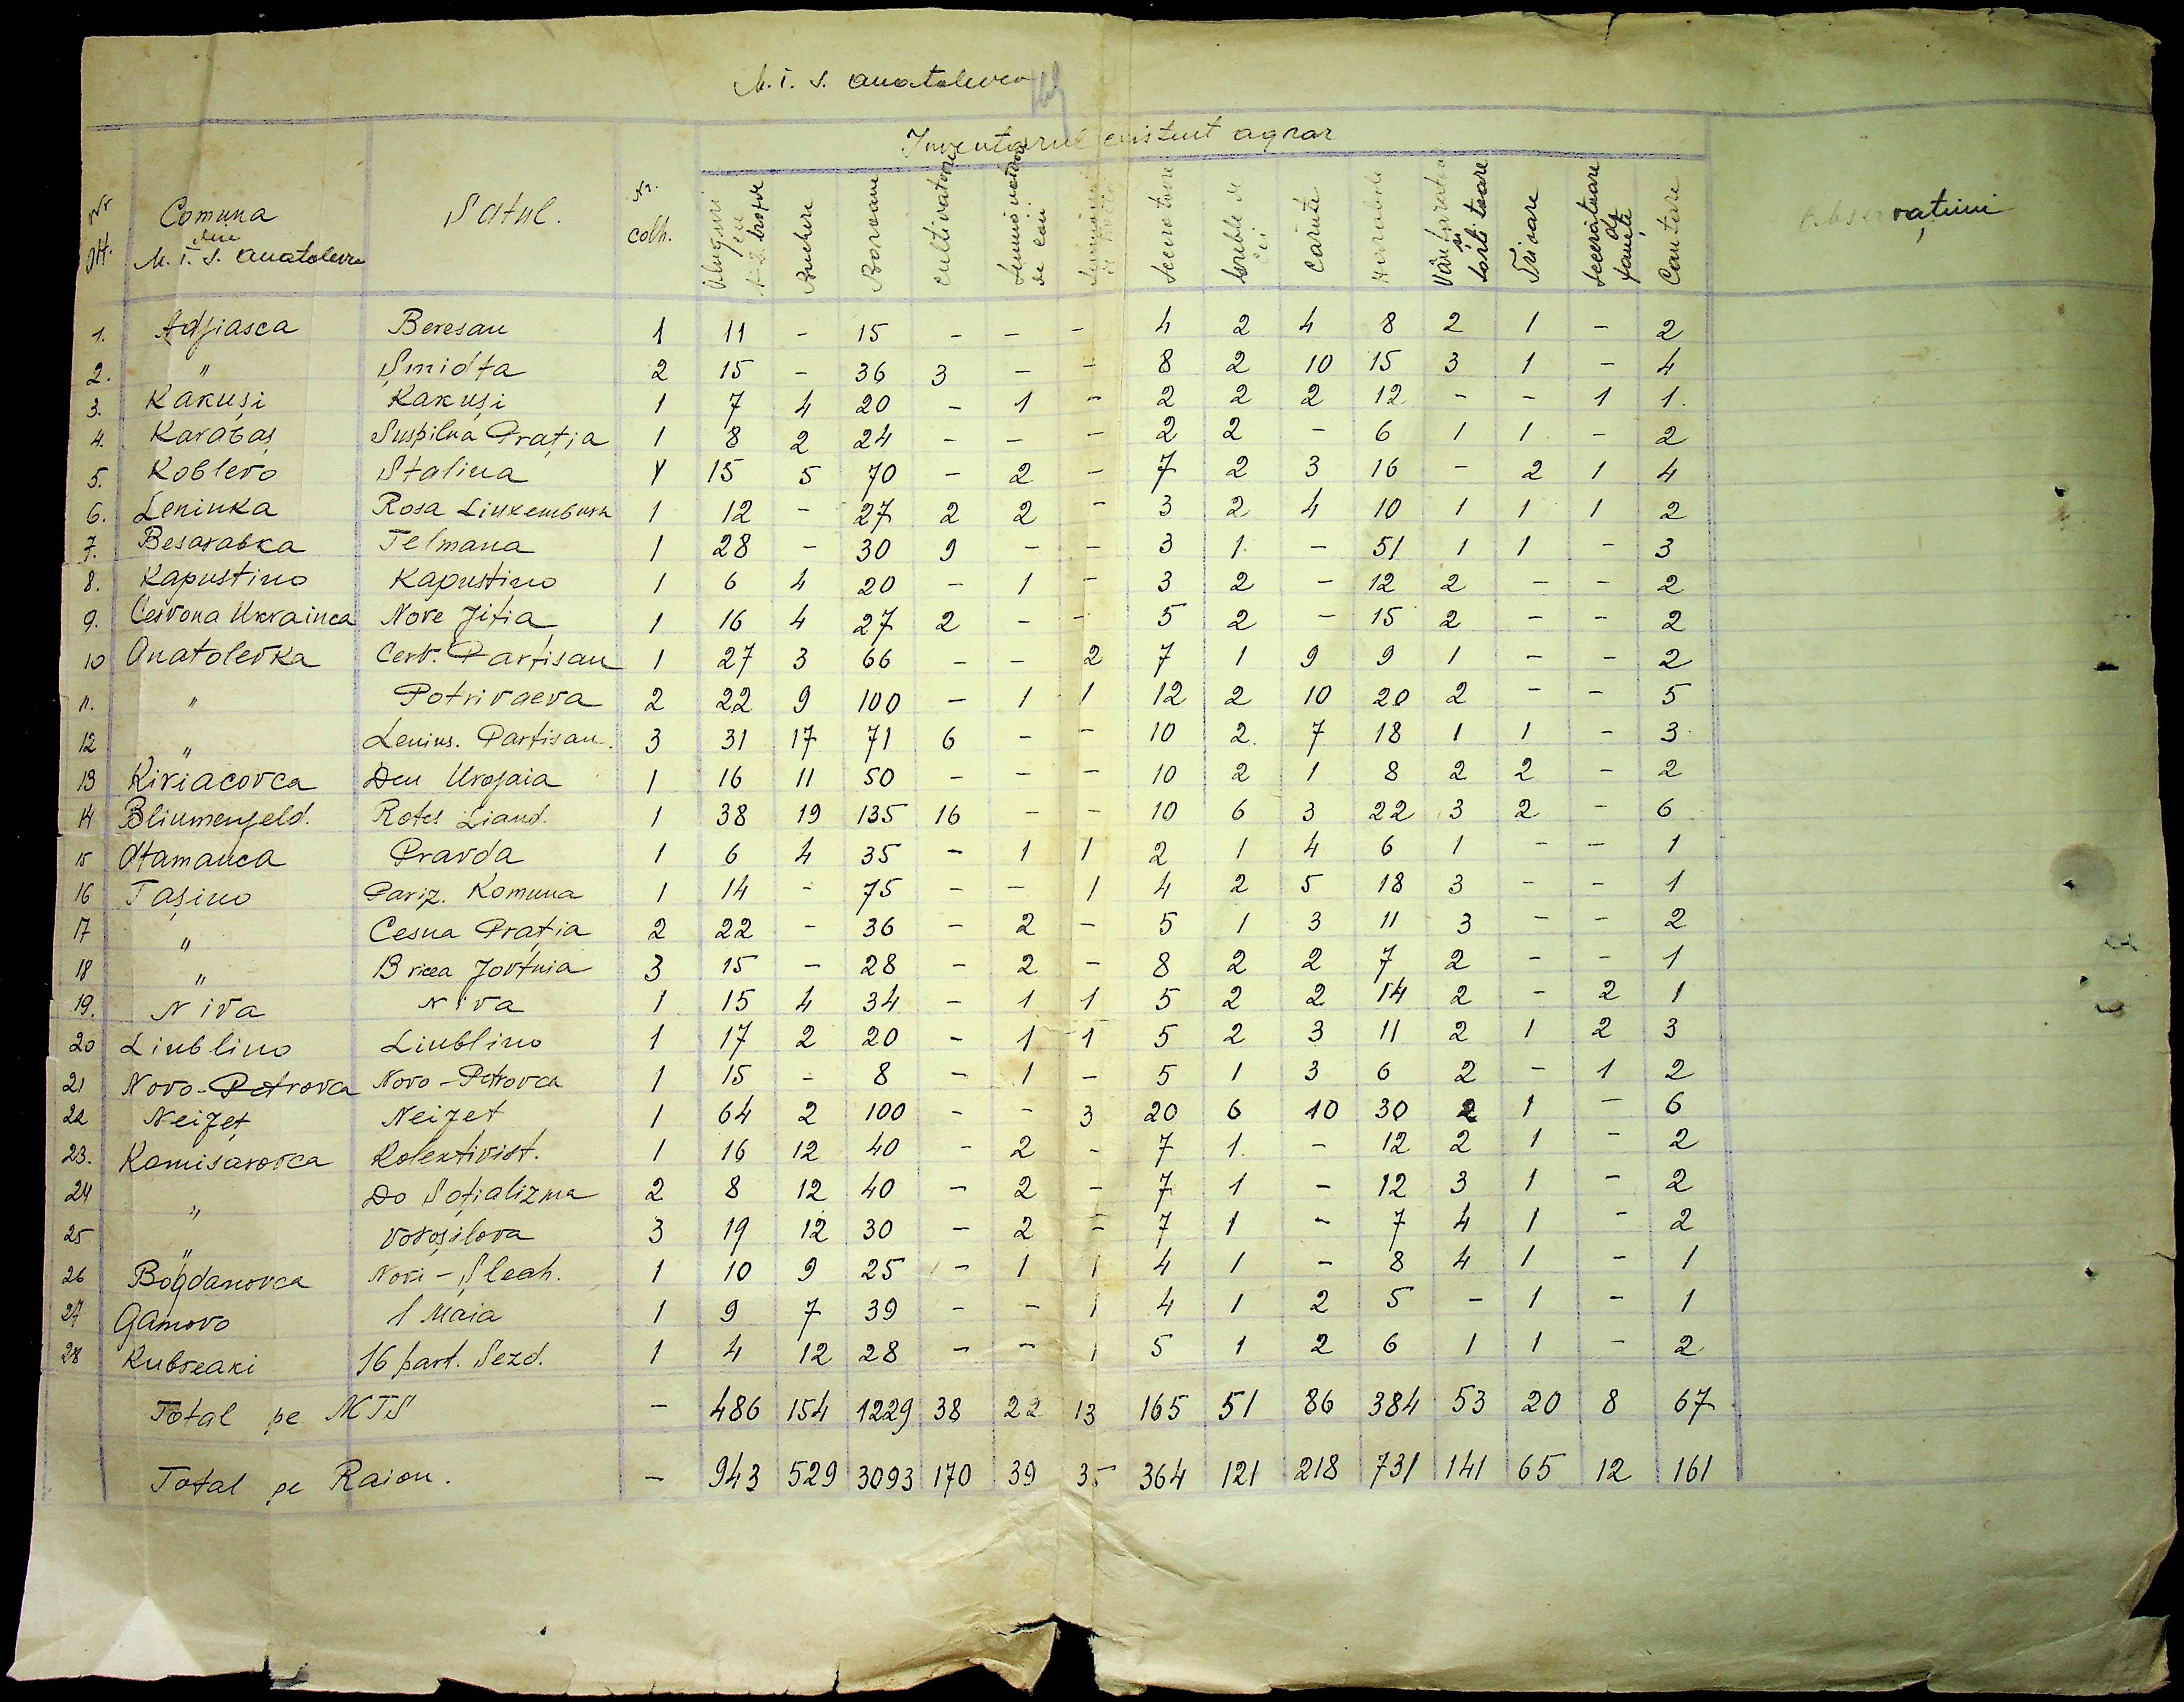 M.T.S. Anatolevca
Inventarul existent agrar
Nr. crt. Comuna din M.T.S. Anatolevca Satul. Nr. colh. Pluguri cu 1-2 brazde Buchere Boroane cultivatoare de cai Secerători Greble de cai Carute Vânturători și sortitoare Trioare secerătoare de Cantare Observațiuni
1. Adjiasca Beresan 1 11 - 15 - - - 4 2 4 8 2 1 - 2
2. " Șmidta 2 15 - 36 3 - - 8 2 10 15 3 1 - 4
3. Kakuși Kakuși 1 7 4 20 - 1 - 2 2 2 12 - - 1 1.
4. Karabaș Suspilna Prația 1 8 2 24 - - - 2 2 - 6 1 1 - 2
5. Koblevo Stalina 1 15 5 70 - 2 - 7 2 3 16 - 2 1 4
6. Leninka Rosa Liuxemburh 1 12 - 27 2 2 - 3 2 4 10 1 1 1 2
7. Besarabka Telmana 1 28 - 30 9 - - 3 1 - 51 1 1 - 3
8. Kapustino Kapustino 1 6 4 20 - 1 - 3 2 - 12 2 - - 2
9. Cervona Ukrainca Nove Jitia 1 16 4 27 2 - - 5 2 - 15 2 - - 2
10 Anatolevka Cerv. Partisan 1 27 3 66 - - 2 7 1 9 9 1 - - 2
11. " Potrivaeva 2 22 9 100 - 1 1 12 2 10 20 2 - - 5
12 " Lenins. Partisan. 3 31 17 71 6 - - 10 2. 7 18 1 1 - 3
13 Kiriacovca Den Urojaia 1 16 11 50 - - - 10 2 1 8 2 2 - 2
14 Bliumenfeld. Rotes Liand. 1 38 19 135 16 - - 10 6 3 22 3 2 - 6
15 Atamanca Pravda 1 6 4 35 - 1 1 2 1 4 6 1 - - 1
16 Tașino Pariz. Komuna 1 14 - 75 - - 1 4 2 5 18 3 - - 1
17 " Cesna Prația 2 22 - 36 - 2 - 5 1 3 11 3 - - 2
18 " 13 ricea Jovtnia 3 15 - 28 - 2 - 8 2 2 7 2 - - 1
19. Niva Niva 1 15 4 34 - 1 1 5 2 2 14 2 - 2 1
20 Liublino Liublino 1 17 2 20 - 1 1 5 2 3 11 2 1 2 3
21 Novo-Petrovca Novo-Petrovca 1 15 - 8 - 1 - 5 1 3 6 2 - 1 2
22 Neizeț Neizet 1 64 2 100 - - 3 20 6 10 30 2 1 - 6
23. Komisarovca Kolektivist. 1 16 12 40 - 2 - 7 1. - 12 2 1 - 2
24 " Do Soțializma 2 8 12 40 - 2 - 7 1 - 12 3 1 - 2
25 " Voroșilova 3 19 12 30 - 2 - 7 1 - 7 4 1 - 2
26 Bogdanovca Novi-Șleah. 1 10 9 25 - 1 1 4 1 - 8 4 1 - 1
27 Gamovo 1 Maia 1 9 7 39 - - 1 4 1 2 5 - 1 - 1
28 Kubreaki 16 part. Sezd. 1 4 12 28 - - 1 5 1 2 6 1 1 - 2
Total pe MTS - 486 154 1229 38 22 13 165 51 86 384 53 20 8 67
Total pe Raion. - 943 529 3093 170 39 35 364 121 218 731 141 65 12 161